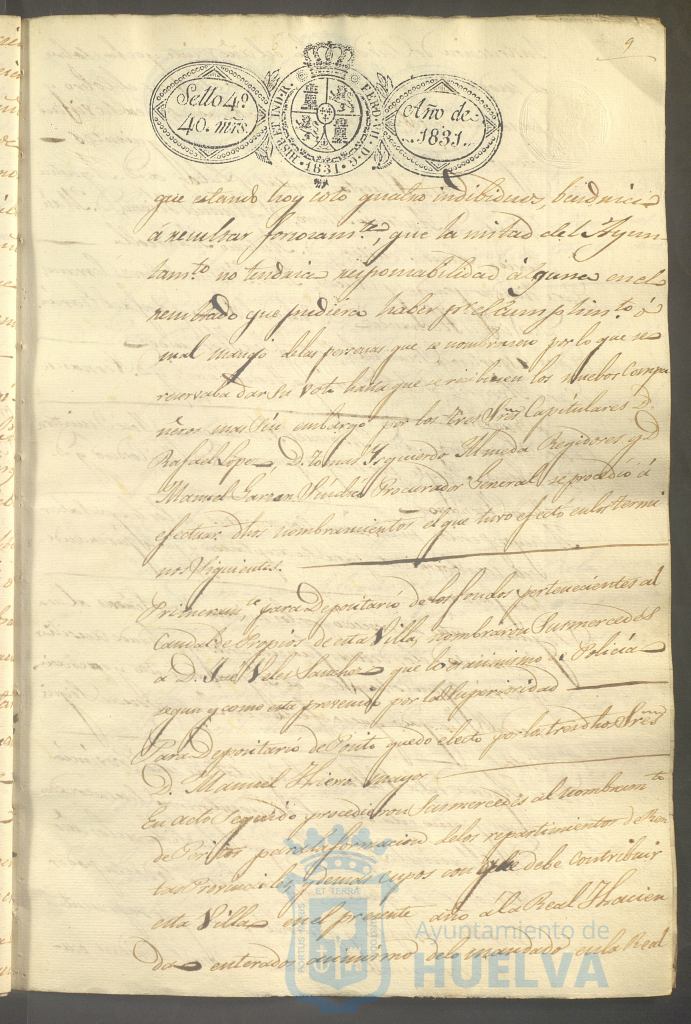 9
Sello 4º.
40. mrs.
HISP. ET IND. R.
FERD. VII. D. G.
1831
Año de
1831.
que estando hoy solo quatro indibiduos, bendria
á resultar forzoram.te, que la mitad del Ayun-
tam.to no tendria responsabilidad álguna en el
resultado que pudiera haber pr. el cumplim.to ó
mal manejo delas personas que se nombrasen por lo que se
reservaba dar su voto hasta que se recibiesen los nuebos Compa
ñeros mas sin embargo por los tres Sres. Capitulares D.
Rafael Lopez, D. Tomas Ysquierdo Almeda Regidores y D.
Manuel Garzon Sindico Procurador General se procedió á
efectuar dhos nombramientos el que tuvo efectó en los termi
nos siguientes.
Primeram.te, para Depositario de los fondos pertenecientes al
Caudal de Propios de esta Villa, nombraron Sus mercedes
a D. José Velez Sanchez que lo es asimismo de Policia
segun y como esta prevenido por la Superioridad
Para Depositario de Posito quedo electo por los tres dhos Sres.
D. Manuel Hiero mayor
En acto seguido procedieron Sus mercedes al nombram.to
de Peritos para la formacion delos repartimientos de Ren
tas Provinciales, y demas cupos con que debe contribuir
esta Villa en el presente año á la Real Hacien
da enterados asimismo delo mandado en la Real
PORTUS MARIS
ET TERRAE
CUSTODIA
Ayuntamiento de
HUELVA